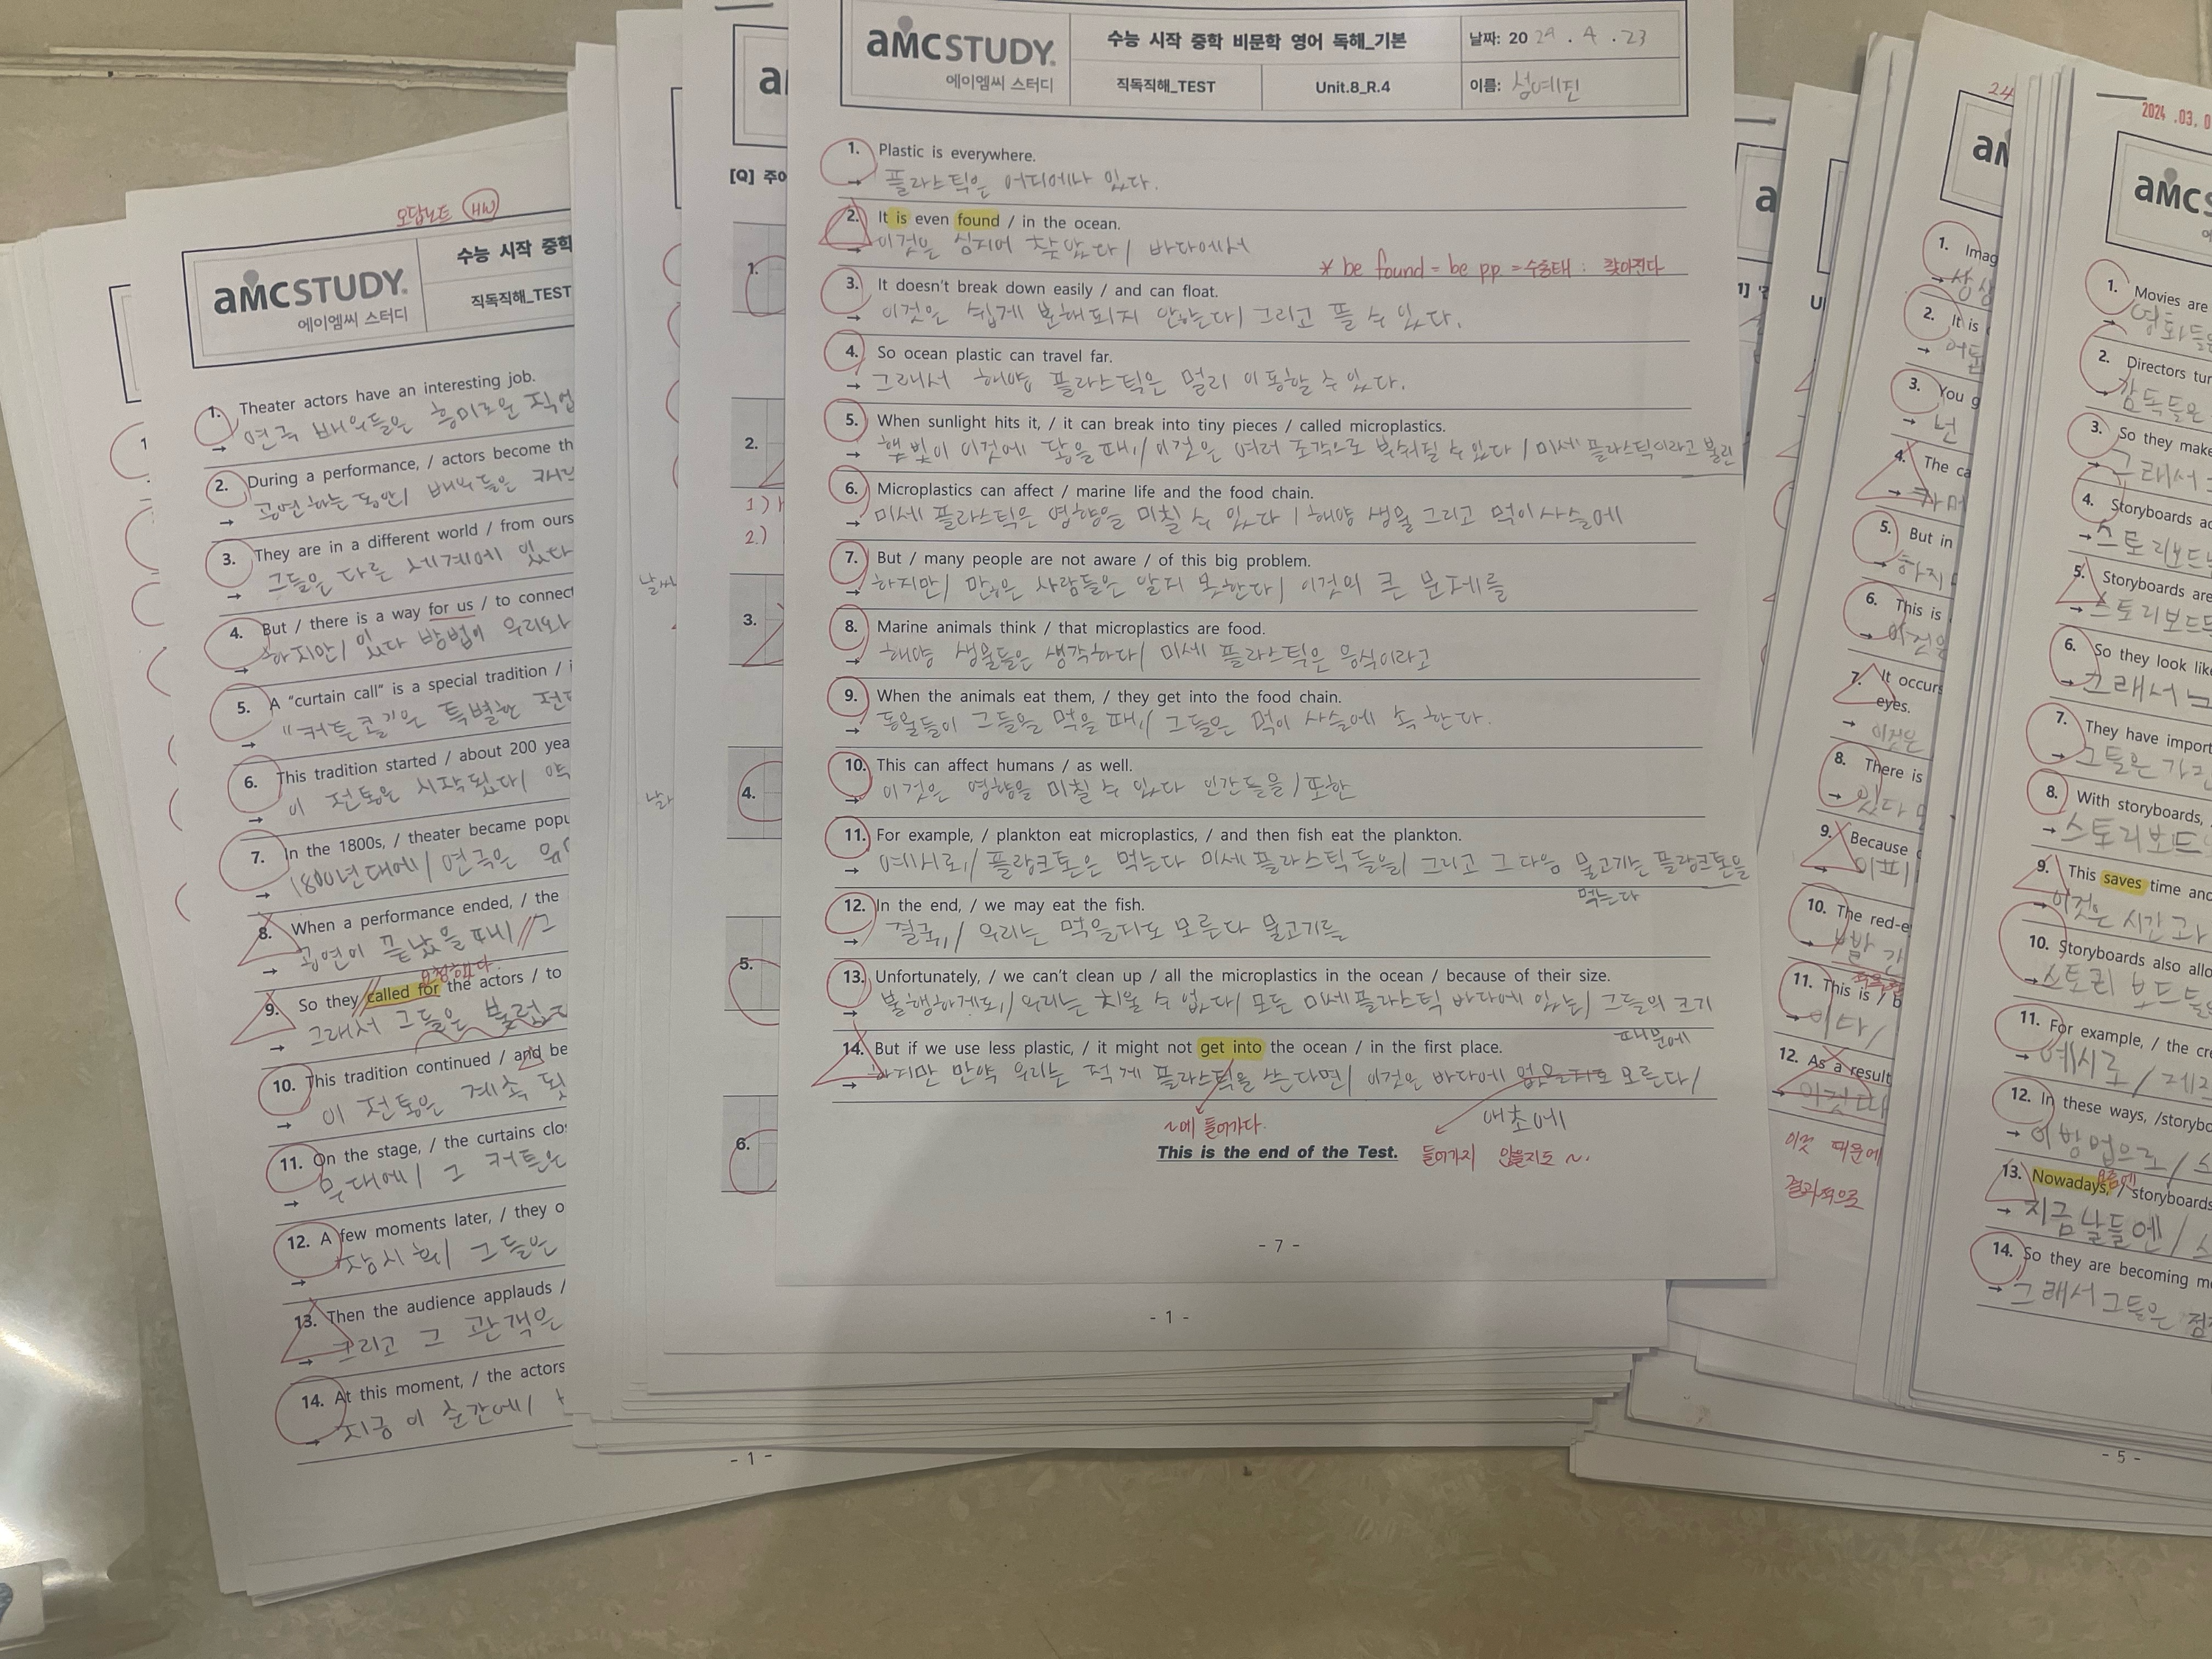 오답노트 HW
aMCSTUDY.
에이엠씨 스터디
수능 시작 중학
직독직해_TEST
1. Theater actors have an interesting job.
연극 배우들은 흥미로운 직업
2. During a performance, / actors become th
→ 공연하는 동안/ 배우들은
3. They are in a different world / from ours
→ 그들은 다른 세계에 있다
4. But / there is a way for us / to connect
→ 하지만/ 있다 방법이 우리와
5. A "curtain call" is a special tradition / i
→ "커튼콜"은 특별한 전
6. This tradition started / about 200 yea
→ 이 전통은 시작됬다/ 약
7. In the 1800s, / theater became popu
→ 1800년대에/ 연극은
8. When a performance ended, / the
→ 공연이 끝났을 때/ 그
요청하다
9. So they called for the actors / to
→ 그래서 그들은 불렀다
10. This tradition continued / and be
→ 이 전통은 계속 됬
11. On the stage, / the curtains clo
→ 무대에/ 그 커튼은
12. A few moments later, / they o
→ 잠시 후/ 그들은
13. Then the audience applauds /
→ 그리고 그 관객은
14. At this moment, / the actors
→ 지금 이 순간에/
- 1 -
1
[Q] 주어
1.
2.
1)
2.)
3.
4.
5.
6.
- 1 -
aMCSTUDY.
에이엠씨 스터디
수능 시작 중학 비문학 영어 독해_기본
날짜: 20 24 . 4 . 23
직독직해_TEST
Unit.8_R.4
이름: 섬예진
1. Plastic is everywhere.
→ 플라스틱은 어디에나 있다.
2. It is even found / in the ocean.
→ 이것은 심지어 찾았다/ 바다에서
* be found = be pp = 수동태 : 찾아진다
3. It doesn't break down easily / and can float.
→ 이것은 쉽게 분해되지 안는다/ 그리고 뜰 수 있다.
4. So ocean plastic can travel far.
→ 그래서 해양 플라스틱은 멀리 이동할 수 있다.
5. When sunlight hits it, / it can break into tiny pieces / called microplastics.
→ 햇빛이 이것에 닿을 때,/ 이것은 여러 조각으로 부숴질 수 있다 / 미세 플라스틱이라고 불린
6. Microplastics can affect / marine life and the food chain.
→ 미세 플라스틱은 영향을 미칠 수 있다 / 해양 생물 그리고 먹이사슬에
7. But / many people are not aware / of this big problem.
→ 하지만/ 많은 사람들은 알지 못한다/ 이것의 큰 문제를
8. Marine animals think / that microplastics are food.
→ 해양 생물들은 생각하다/ 미세 플라스틱은 음식이라고
9. When the animals eat them, / they get into the food chain.
→ 동물들이 그들을 먹을 때,/ 그들은 먹이 사슬에 속한다.
10. This can affect humans / as well.
→ 이것은 영향을 미칠 수 있다 인간들을/ 또한
11. For example, / plankton eat microplastics, / and then fish eat the plankton.
→ 예시로,/ 플랑크톤은 먹는다 미세 플라스틱들을/ 그리고 그 다음 물고기는 플랑크톤을
먹는다
12. In the end, / we may eat the fish.
→ 결국,/ 우리는 먹을지도 모른다 물고기를
13. Unfortunately, / we can't clean up / all the microplastics in the ocean / because of their size.
→ 불행하게도,/ 우리는 치울 수 없다/ 모든 미세플라스틱 바다에 있는/ 그들의 크기
때문에
14. But if we use less plastic, / it might not get into the ocean / in the first place.
→ 하지만 만약 우리는 적게 플라스틱을 쓴다면/ 이것은 바다에 없을지도 모른다/
애초에
~에 들어가다.
들어가지 않을지도 ~.
This is the end of the Test.
- 7 -
24
1. Imag
→ 상상
2. It is
→ 어둠
3. You g
→ 넌
4. The ca
→ 카메
5. But in
→ 하지
6. This is
→ 이것은
7. It occurs
eyes.
→ 이것은
8. There is
→ 있다
9. Because
→
10. The red-e
→ 빨간
11. This is / b
→ 이다/
12. As a result
→
이것 때문에
결과적으로
2024 .03, 0
aMCS
1. Movies are
→ 영화들은
2. Directors tur
→ 감독들은
3. So they make
→ 그래서
4. Storyboards ac
→ 스토리보드
5. Storyboards are
→ 스토리보드
6. So they look like
→ 그래서
7. They have import
→ 그들은 가진
8. With storyboards,
→ 스토리보드
9. This saves time and
→ 이것은 시간과
10. Storyboards also allo
→ 스토리 보드들은
11. For example, / the cre
→ 예시로 /
12. In these ways, /storybo
→ 이 방법으로/
13. Nowadays, / storyboards
→ 지금날들엔/
14. So they are becoming mo
→ 그래서 그들은 점
- 5 -